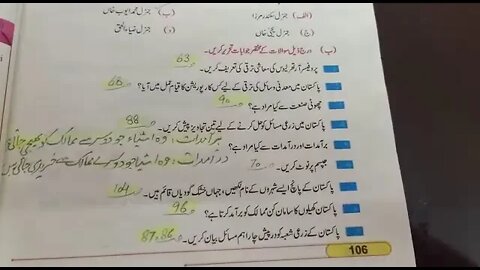 (الف) جنرل سکندر مرزا (ب) جنرل محمد ایوب خاں
(ج) جنرل یحییٰ خاں (د) جنرل ضیاءالحق
(ب) درج ذیل سوالات کے مختصر جوابات تحریر کریں۔
پروفیسر آرتھر لیوس کی معاشی ترقی کی تعریف کریں۔ 63
پاکستان میں معدنی وسائل کی ترقی کے لیے کس کارپوریشن کا قیام عمل میں آیا؟ 68
چھوٹی صنعت سے کیا مراد ہے؟ 90
پاکستان میں زرعی مسائل کو حل کرنے کے لیے تین تجاویز پیش کریں۔ 88
برآمدات اور درآمدات سے کیا مراد ہے؟ برآمدات: وہ اشیاء جو دوسرے ممالک کو بھیجی جاتی
درآمدات: وہ اشیا جو دوسرے ممالک سے خریدی جاتی ہیں
جپسم پر نوٹ کریں۔ 70
پاکستان کے پانچ ایسے شہروں کے نام لکھیں، جہاں خشک گودیاں قائم ہیں۔ 104
پاکستان کھیلوں کا سامان کن ممالک کو برآمد کرتا ہے؟ 96
پاکستان کے زرعی شعبہ کو درپیش چار اہم مسائل بیان کریں۔ 87،86
106